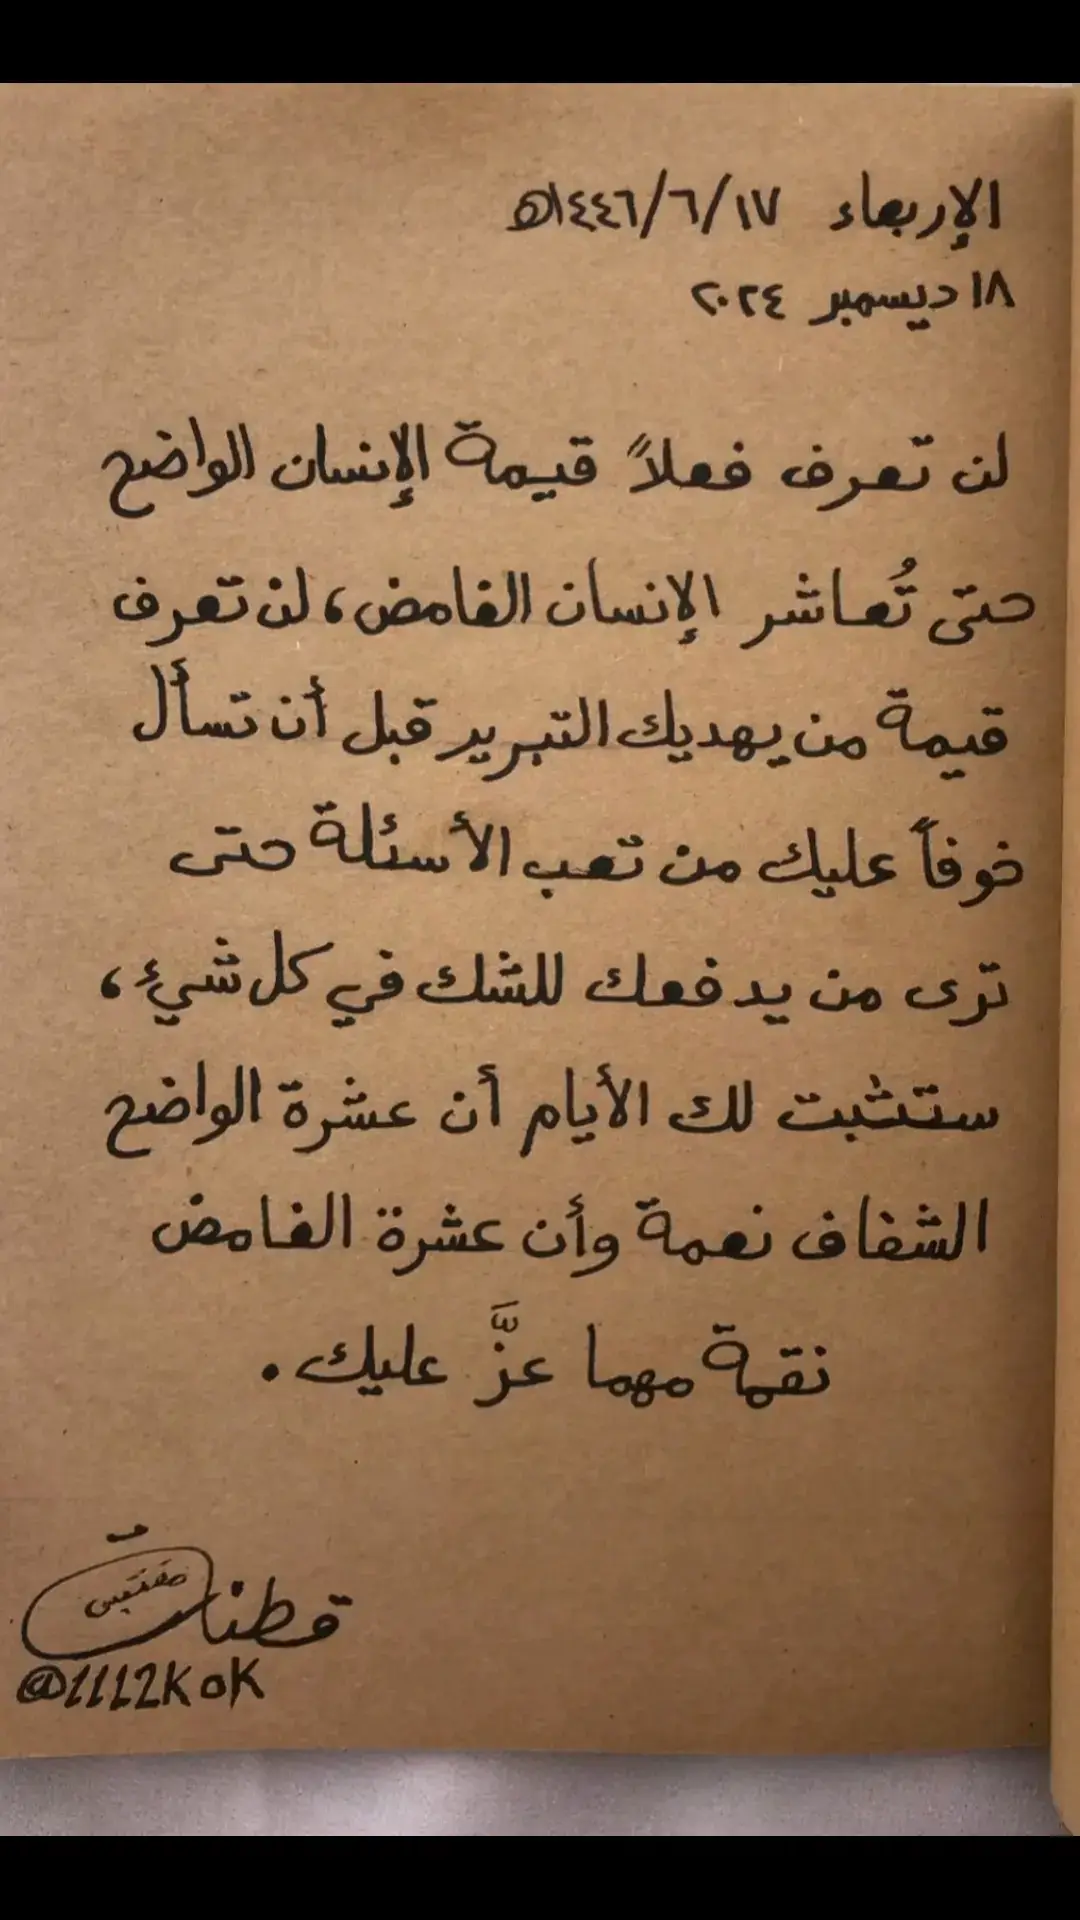 الإربعاء ١٤٤٦/٦/١٧هـ
١٨ ديسمبر ٢٠٢٤
لن تعرف فعلاً قيمة الإنسان الواضح
حتى تُعاشر الإنسان الغامض، لن تعرف
قيمة من يهديك التبرير قبل أن تسأل
خوفاً عليك من تعب الأسئلة حتى
ترى من يدفعك للشك في كل شيءٍ،
ستثبت لك الأيام أن عشرة الواضح
الشفاف نعمة وأن عشرة الغامض
نقمة مهما عزَّ عليك.
مقتبس
قطنات
@1112KoK